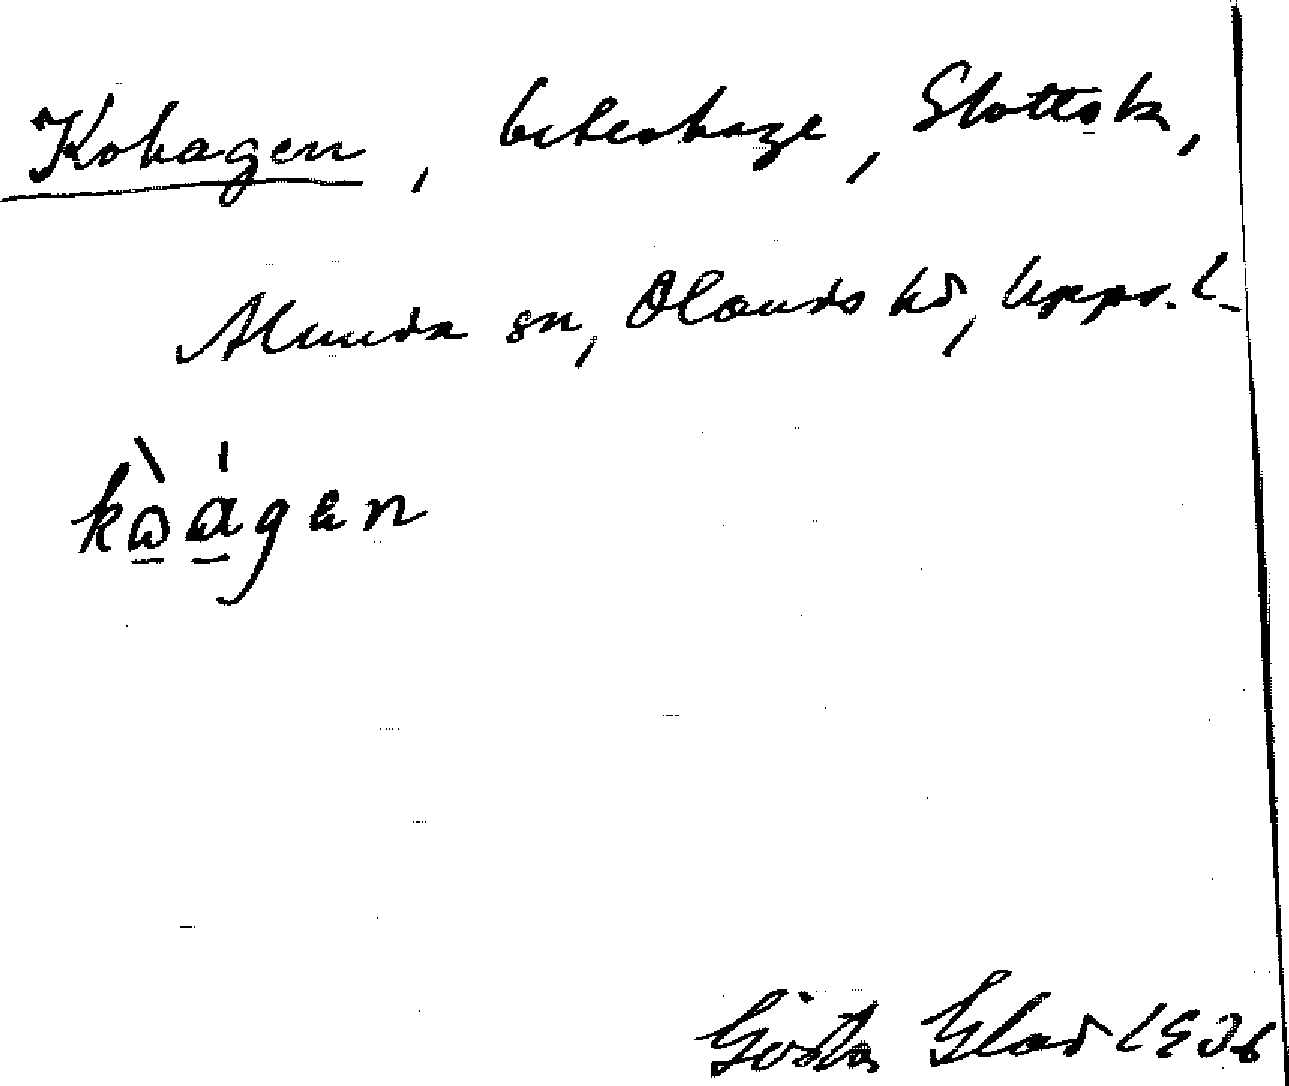 Kohagen, beteshage, Slottsk,
Alunda sn, Olands hd, Upps. l.
kωαgən
Gösta Glad 1936